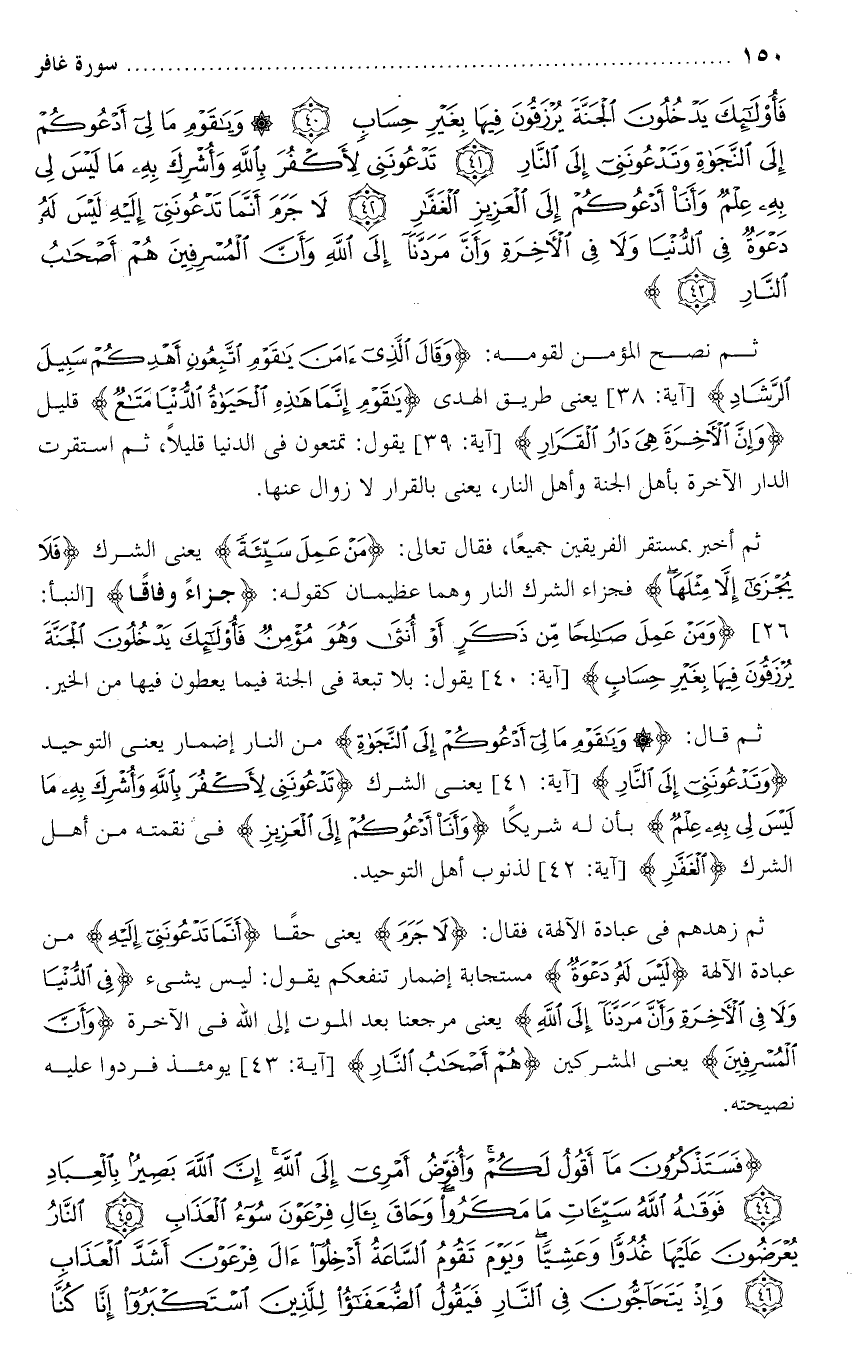 ١٥٠ ........ سورة غافر
فَأُوْلَٰٓئِكَ يَدْخُلُونَ ٱلْجَنَّةَ يُرْزَقُونَ فِيهَا بِغَيْرِ حِسَابٍ ٤٠ ۞ وَيَٰقَوْمِ مَا لِىٓ أَدْعُوكُمْ
إِلَى ٱلنَّجَوٰةِ وَتَدْعُونَنِىٓ إِلَى ٱلنَّارِ ٤١ تَدْعُونَنِى لِأَكْفُرَ بِٱللَّهِ وَأُشْرِكَ بِهِۦ مَا لَيْسَ لِى
بِهِۦ عِلْمٌ وَأَنَا۠ أَدْعُوكُمْ إِلَى ٱلْعَزِيزِ ٱلْغَفَّٰرِ ٤٢ لَا جَرَمَ أَنَّمَا تَدْعُونَنِىٓ إِلَيْهِ لَيْسَ لَهُۥ
دَعْوَةٌ فِى ٱلدُّنْيَا وَلَا فِى ٱلْأَخِرَةِ وَأَنَّ مَرَدَّنَآ إِلَى ٱللَّهِ وَأَنَّ ٱلْمُسْرِفِينَ هُمْ أَصْحَٰبُ
ٱلنَّارِ ٤٣ ﴾
ثـم نصـح المؤمـن لقومـه: ﴿وَقَالَ ٱلَّذِىٓ ءَامَنَ يَٰقَوْمِ ٱتَّبِعُونِ أَهْدِكُمْ سَبِيلَ
ٱلرَّشَادِ﴾ [آية: ٣٨] يعنى طريق الهدى ﴿يَٰقَوْمِ إِنَّمَا هَٰذِهِ ٱلْحَيَوٰةُ ٱلدُّنْيَا مَتَٰعٌ﴾ قليل
﴿وَإِنَّ ٱلْأَخِرَةَ هِىَ دَارُ ٱلْقَرَارِ﴾ [آية: ٣٩] يقول: تمتعون فى الدنيا قليلاً، ثـم استقرت
الدار الآخرة بأهل الجنة وأهل النار، يعنى بالقرار لا زوال عنها.
ثم أخبر بمستقر الفريقين جميعًا، فقال تعالى: ﴿مَنْ عَمِلَ سَيِّئَةً﴾ يعنى الشرك ﴿فَلَا
يُجْزَىٰٓ إِلَّا مِثْلَهَا﴾ فجزاء الشرك النار وهما عظيمان كقوله: ﴿جزاءً وفاقًا﴾ [النبأ:
٢٦] ﴿وَمَنْ عَمِلَ صَٰلِحًا مِّن ذَكَرٍ أَوْ أُنثَىٰ وَهُوَ مُؤْمِنٌ فَأُوْلَٰٓئِكَ يَدْخُلُونَ ٱلْجَنَّةَ
يُرْزَقُونَ فِيهَا بِغَيْرِ حِسَابٍ﴾ [آية: ٤٠] يقول: بلا تبعة فى الجنة فيما يعطون فيها من الخير.
ثـم قـال: ﴿۞ وَيَٰقَوْمِ مَا لِىٓ أَدْعُوكُمْ إِلَى ٱلنَّجَوٰةِ﴾ من النار إضمار يعنى التوحيد
﴿وَتَدْعُونَنِىٓ إِلَى ٱلنَّارِ﴾ [آية: ٤١] يعنى الشرك ﴿تَدْعُونَنِى لِأَكْفُرَ بِٱللَّهِ وَأُشْرِكَ بِهِۦ مَا
لَيْسَ لِى بِهِۦ عِلْمٌ﴾ بأن له شريكًا ﴿وَأَنَا۠ أَدْعُوكُمْ إِلَى ٱلْعَزِيزِ﴾ فى نقمته من أهل
الشرك ﴿ٱلْغَفَّٰرِ﴾ [آية: ٤٢] لذنوب أهل التوحيد.
ثم زهدهم فى عبادة الآلهة، فقال: ﴿لَا جَرَمَ﴾ يعنى حقًا ﴿أَنَّمَا تَدْعُونَنِىٓ إِلَيْهِ﴾ من
عبادة الآلهة ﴿لَيْسَ لَهُۥ دَعْوَةٌ﴾ مستجابة إضمار تنفعكم يقول: ليس بشىء ﴿فِى ٱلدُّنْيَا
وَلَا فِى ٱلْأَخِرَةِ وَأَنَّ مَرَدَّنَآ إِلَى ٱللَّهِ﴾ يعنى مرجعنا بعد الموت إلى الله فى الآخرة ﴿وَأَنَّ
ٱلْمُسْرِفِينَ﴾ يعنى المشركين ﴿هُمْ أَصْحَٰبُ ٱلنَّارِ﴾ [آية: ٤٣] يومئذ فردوا عليه
نصيحته.
﴿فَسَتَذْكُرُونَ مَآ أَقُولُ لَكُمْ ۚ وَأُفَوِّضُ أَمْرِىٓ إِلَى ٱللَّهِ ۚ إِنَّ ٱللَّهَ بَصِيرٌۢ بِٱلْعِبَادِ
٤٤ فَوَقَىٰهُ ٱللَّهُ سَيِّـَٔاتِ مَا مَكَرُوا۟ ۖ وَحَاقَ بِـَٔالِ فِرْعَوْنَ سُوٓءُ ٱلْعَذَابِ ٤٥ ٱلنَّارُ
يُعْرَضُونَ عَلَيْهَا غُدُوًّا وَعَشِيًّا ۖ وَيَوْمَ تَقُومُ ٱلسَّاعَةُ أَدْخِلُوٓا۟ ءَالَ فِرْعَوْنَ أَشَدَّ ٱلْعَذَابِ
٤٦ وَإِذْ يَتَحَآجُّونَ فِى ٱلنَّارِ فَيَقُولُ ٱلضُّعَفَٰٓؤُا۟ لِلَّذِينَ ٱسْتَكْبَرُوٓا۟ إِنَّا كُنَّا